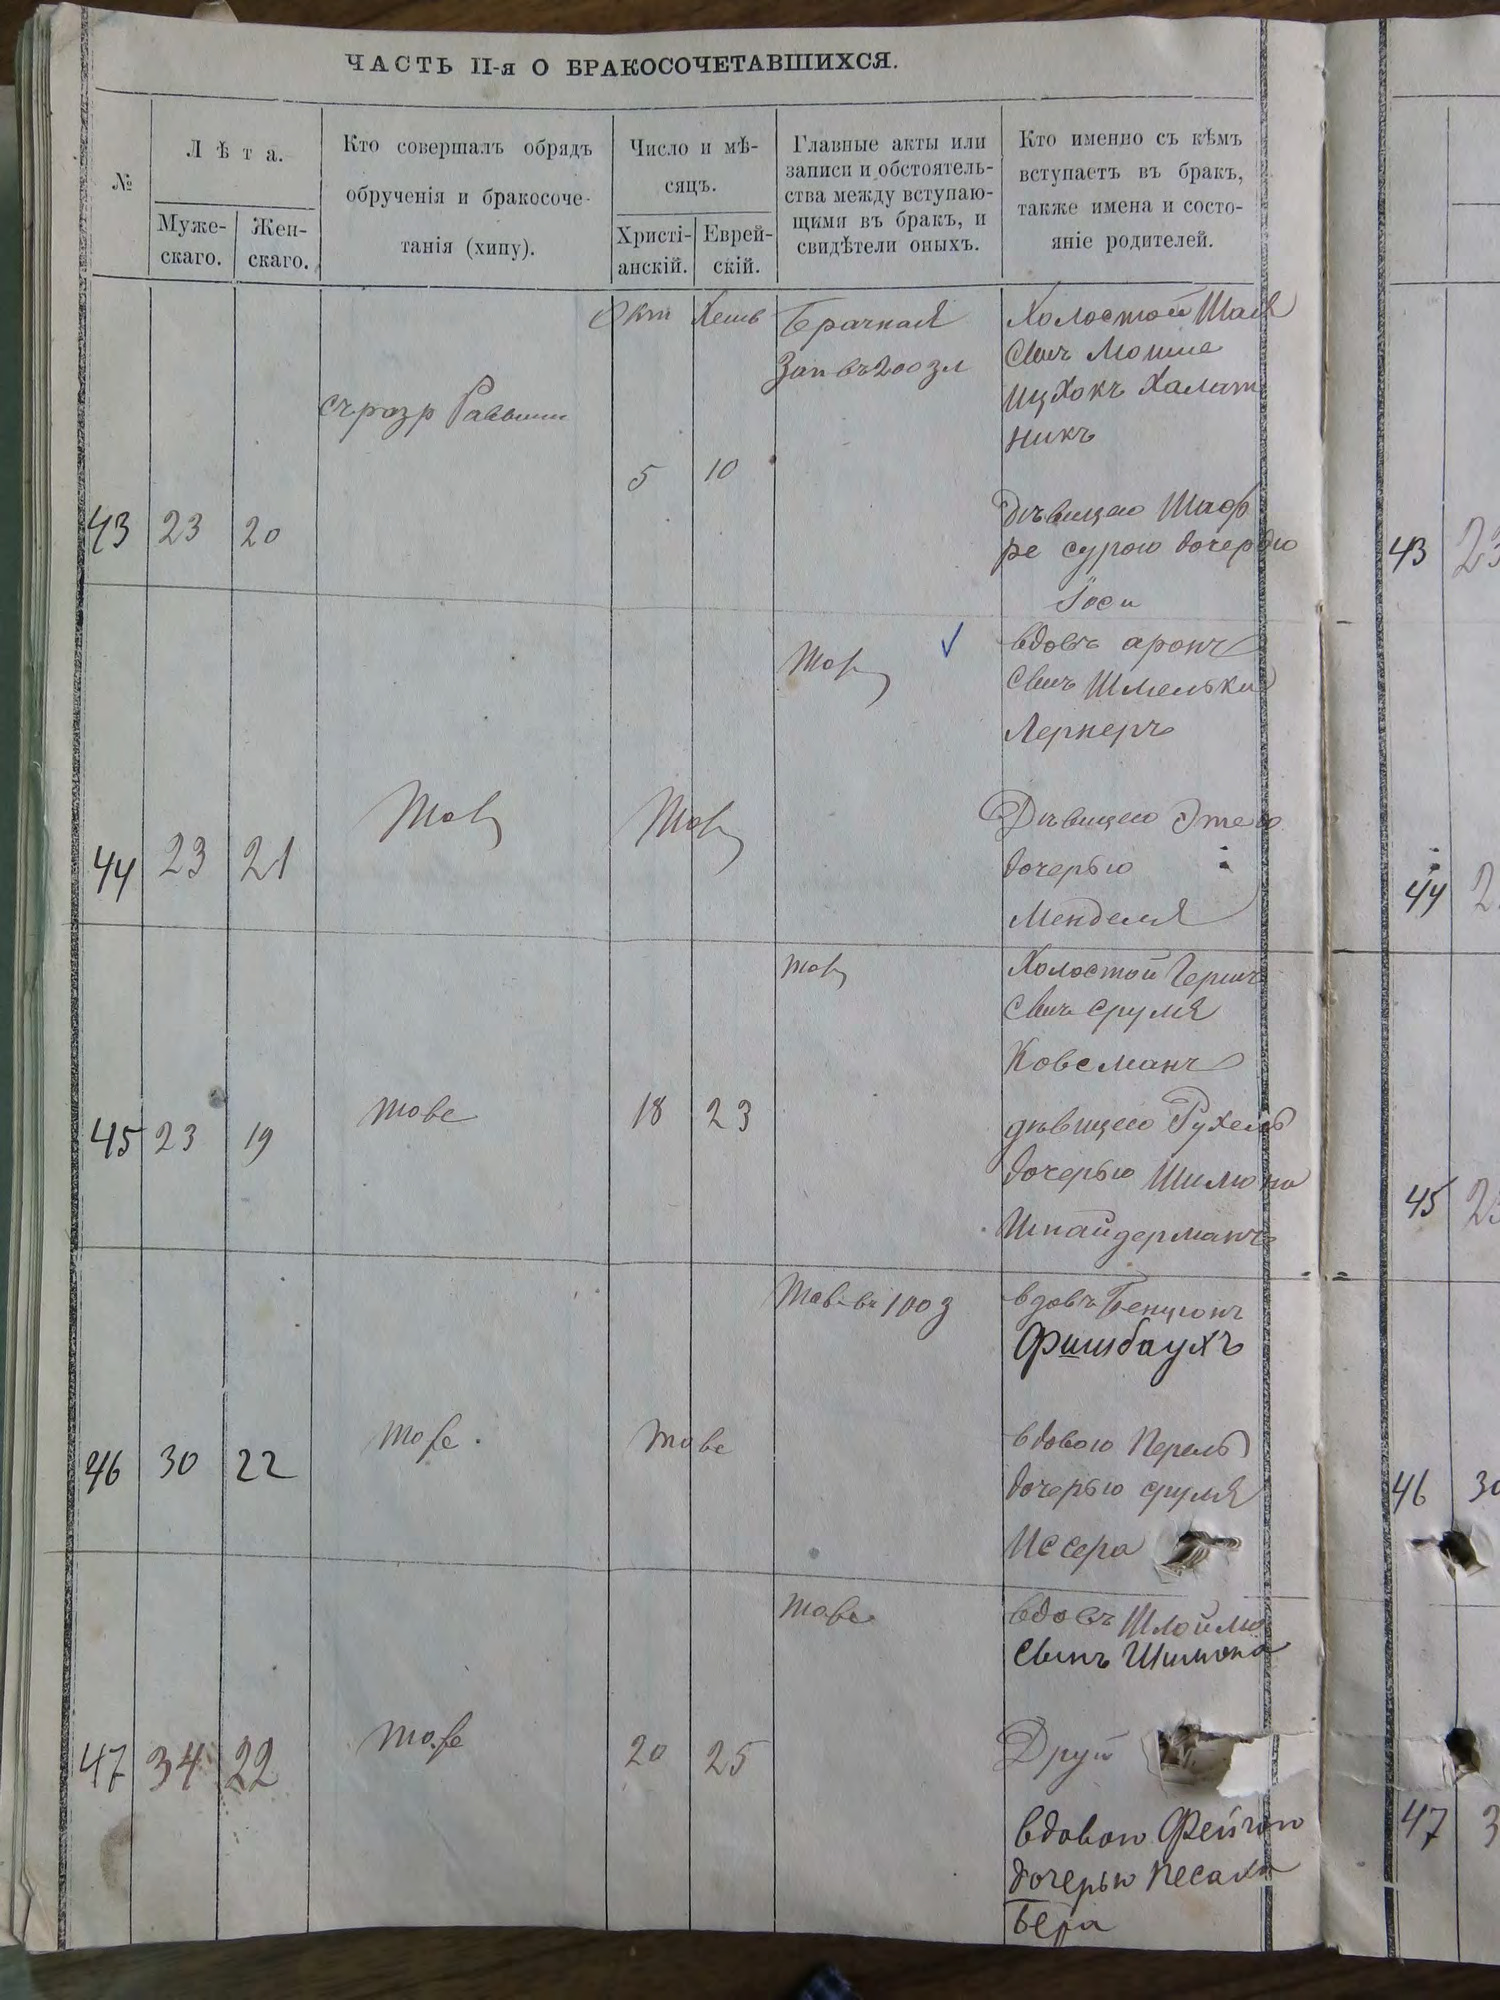 ЧАСТЬ II-я О БРАКОСОЧЕТАВШИХСЯ.
№
Лѣта.
Муже-
скаго.
Жен-
скаго.
Кто совершалъ обрядъ
обрученія и бракосоче-
танія (хипу).
Число и мѣ-
сяцъ.
Христі-
анскій.
Еврей-
скій.
Главные акты или
записи и обстоятель-
ства между вступаю-
щими въ бракъ, и
свидѣтели оныхъ.
Кто именно съ кѣмъ
вступаетъ въ бракъ,
также имена и состо-
яніе родителей.
43
23
20
съ розр
Окт
5
Хешв
10
Брачная
Зап въ 200 зл
Холостой
Сынъ Мошке
Ицхокъ Халат
никъ
Дѣвицею
ре сурою дочерью
Іоси
44
23
21
вдовъ аронъ
Сынъ Шмельки
Лернеръ
Дѣвицею Этею
дочерью
Менделя
45
23
19
тоже
18
23
Холостой Гершъ
Сынъ Сруля
Ковсманъ
дѣвицею Рухель
дочерью Шимона
Шнайдерманъ
46
30
22
тоже
тоже
въ 100 з
вдовъ Бенционъ
Фишбаухъ
вдовою Перель
дочерью сруля
Иссера
47
34
22
тоже
20
25
тоже
вдовъ Шлоймо
сынъ Шимона
Друй
вдовою Фейгою
дочерью Песаха
Бера
43
23
44
2
45
23
46
30
47
3